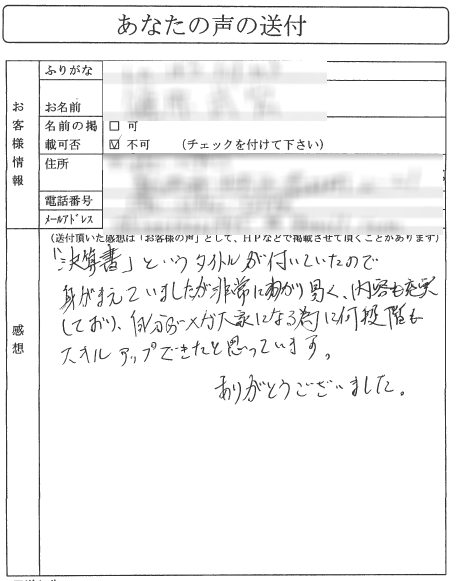 あなたの声の送付
お客様情報
ふりがな
お名前
名前の掲載可否
□ 可
☑ 不可 (チェックを付けて下さい)
住所
電話番号
メールアドレス
感想
(送付頂いた感想は「お客様の声」として、HPなどで掲載させて頂くことがあります)
「決算書」というタイトルが付いていたので
身がまえていましたが非常にわかり易く、内容も充実
しており、自分が大家になる為に何段階も
スキルアップできたと思っています。
ありがとうございました。